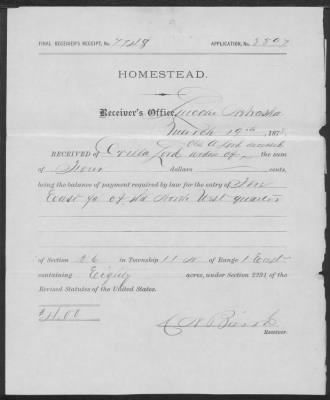 FINAL RECEIVER'S RECEIPT, No. 7748 APPLICATION, No. 8897
HOMESTEAD.
Receiver's Office, Lincoln Nebraska
March 19th, 187
RECEIVED of Orilla Lord widow of Otis A Lord deceased the sum
of Four dollars cents,
being the balance of payment required by law for the entry of The
East ½ of the North West quarter
of Section 26 in Township 11 N of Range 1 East
containing Eighty acres, under Section 2291 of the
Revised Statutes of the United States.
$4.00
Receiver.